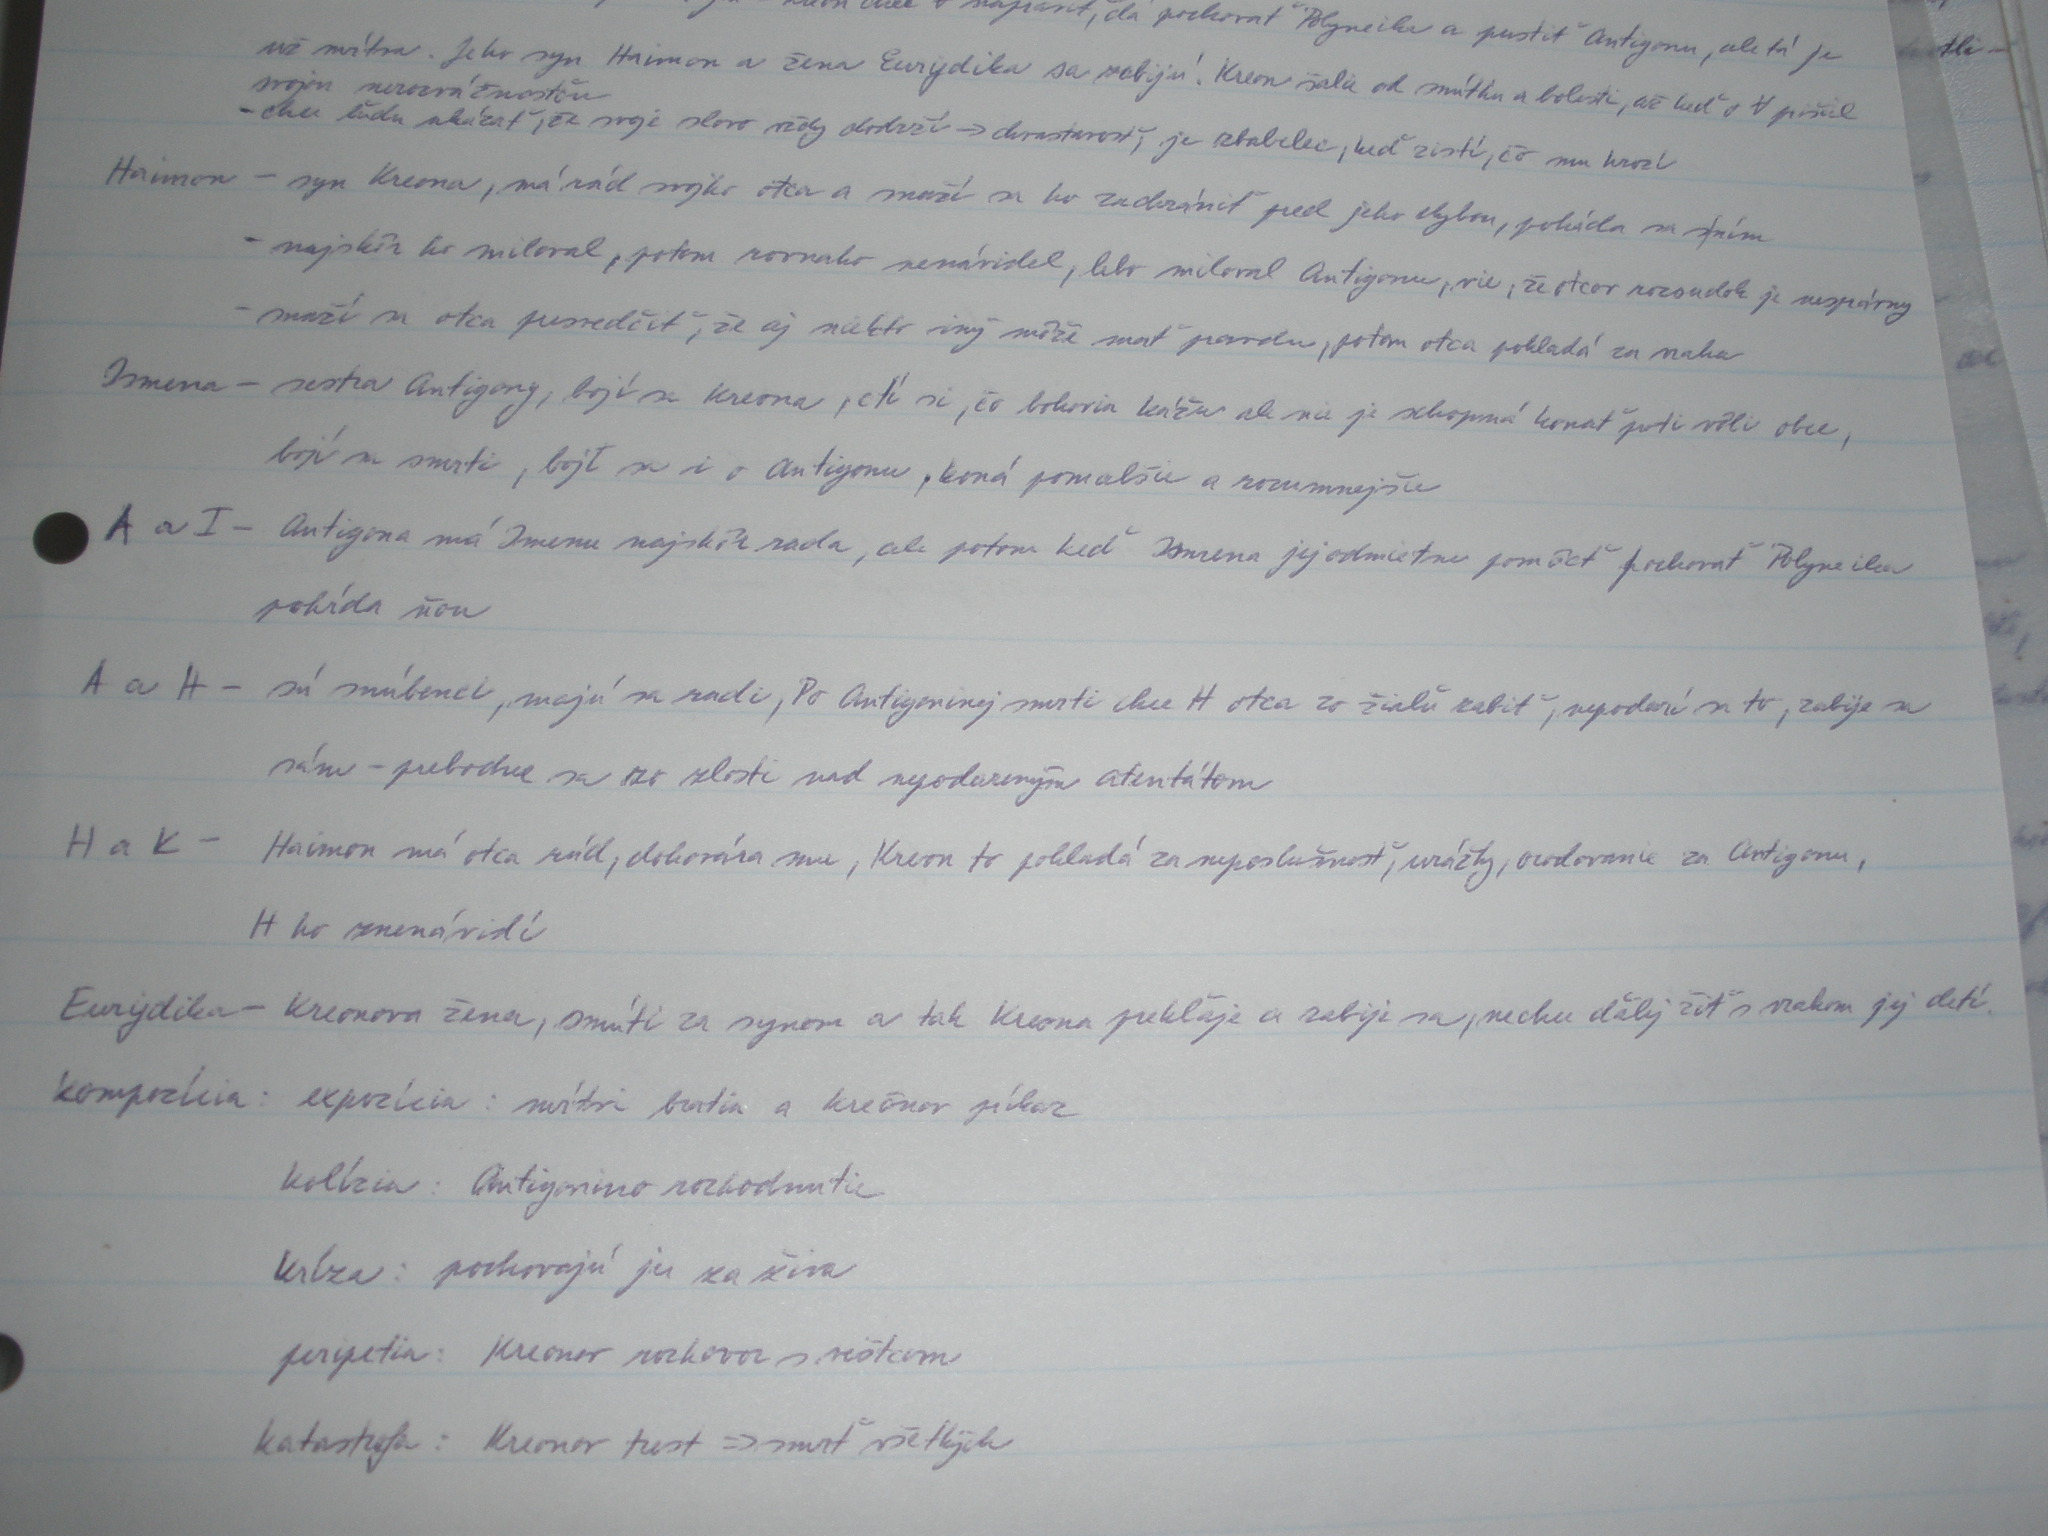 Kreon chce to napraviť, dá pochovať Polyneika a pustiť Antigonu, ale tá je
už mŕtva. Jeho syn Haimon a žena Eurýdika sa zabijú. Kreon šalie od smútku a bolesti, až keď o ∀ prišiel
svojou nerozvážnosťou
- chce ľudu ukázať, že svoje slovo vždy dodrží → chvastavosť, je zbabelec, keď zistí, čo mu hrozí
Haimon - syn Kreona, má rád svojho otca a snaží sa ho zachrániť pred jeho chybou, poháda sa s ním
- najskôr ho miloval, potom rovnako nenávidel, lebo miloval Antigonu, vie, že otcov rozsudok je nesprávny
- snaží sa otca presvedčiť, že aj niekto iný môže mať pravdu, potom otca pokladá za vraha
Ismena - sestra Antigony, bojí sa Kreona, ctí si, čo bohovia kážu ale nie je schopná konať proti vôli obce,
bojí sa smrti, bojí sa i o Antigonu, koná pomalšie a rozumnejšie
A a I - Antigona má Ismenu najskôr rada, ale potom keď Ismena jej odmietne pomôcť pochovať Polyneika
poháda ňou
A a H - sú snúbenci, majú sa radi, Po Antigoninej smrti chce H otca zo žiaľu zabiť, nepodarí sa to, zabije sa
sám - prebodne sa zo zlosti nad nepodareným atentátom
H a K - Haimon má otca rád, dohovára mu, Kreon to pokladá za neposlušnosť, urážky, orodovanie za Antigonu,
H ho znenávidí
Eurýdika - Kreonova žena, smúti za synom a tak Kreona prekľaje a zabije sa, nechce ďalej žiť s vrahom jej detí.
kompozícia: expozícia: mŕtvi bratia a Kreónov príkaz
kolízia: Antigonino rozhodnutie
kríza: pochovajú ju za živa
peripetia: Kreonov rozhovor s veštcom
katastrofa: Kreonov trest ⇒ smrť všetkých